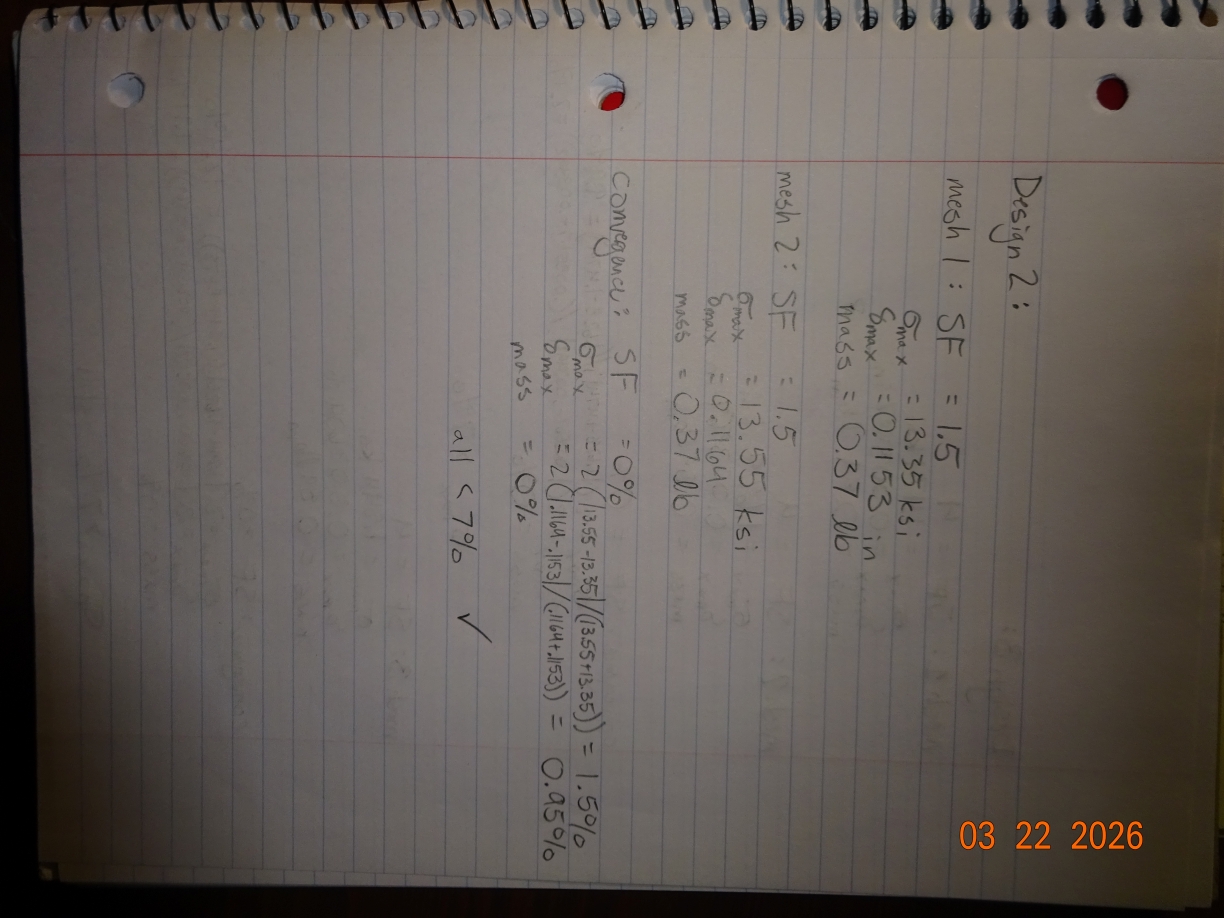 Design 2:
mesh 1: SF = 1.5
σmax = 13.35 ksi
δmax = 0.1153 in
mass = 0.37 lb
mesh 2: SF = 1.5
σmax = 13.55 ksi
δmax = 0.1164
mass = 0.37 lb
Convergence: SF = 0%
σmax = 2(|13.55-13.35|/(13.55+13.35)) = 1.5%
δmax = 2(|.1164-.1153|/(.1164+.1153)) = 0.95%
mass = 0%
all < 7% ✓
03 22 2026